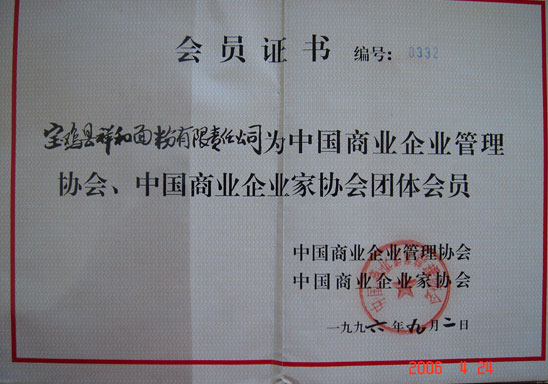 会员证书 编号: 0332
宝鸡县祥和面粉有限责任公司为中国商业企业管理
协会、中国商业企业家协会团体会员
中国商业企业管理协会
中国商业企业家协会
一九九六年九月二日
2006 4 24